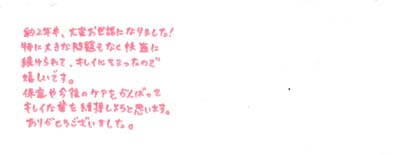 約2年半、大変お世話になりました!
特に大きな問題もなく快適に
続けられて、キレイになったので
嬉しいです。
保定や今後のケアもがんばって
キレイな歯を維持しようと思います。
ありがとうございました。